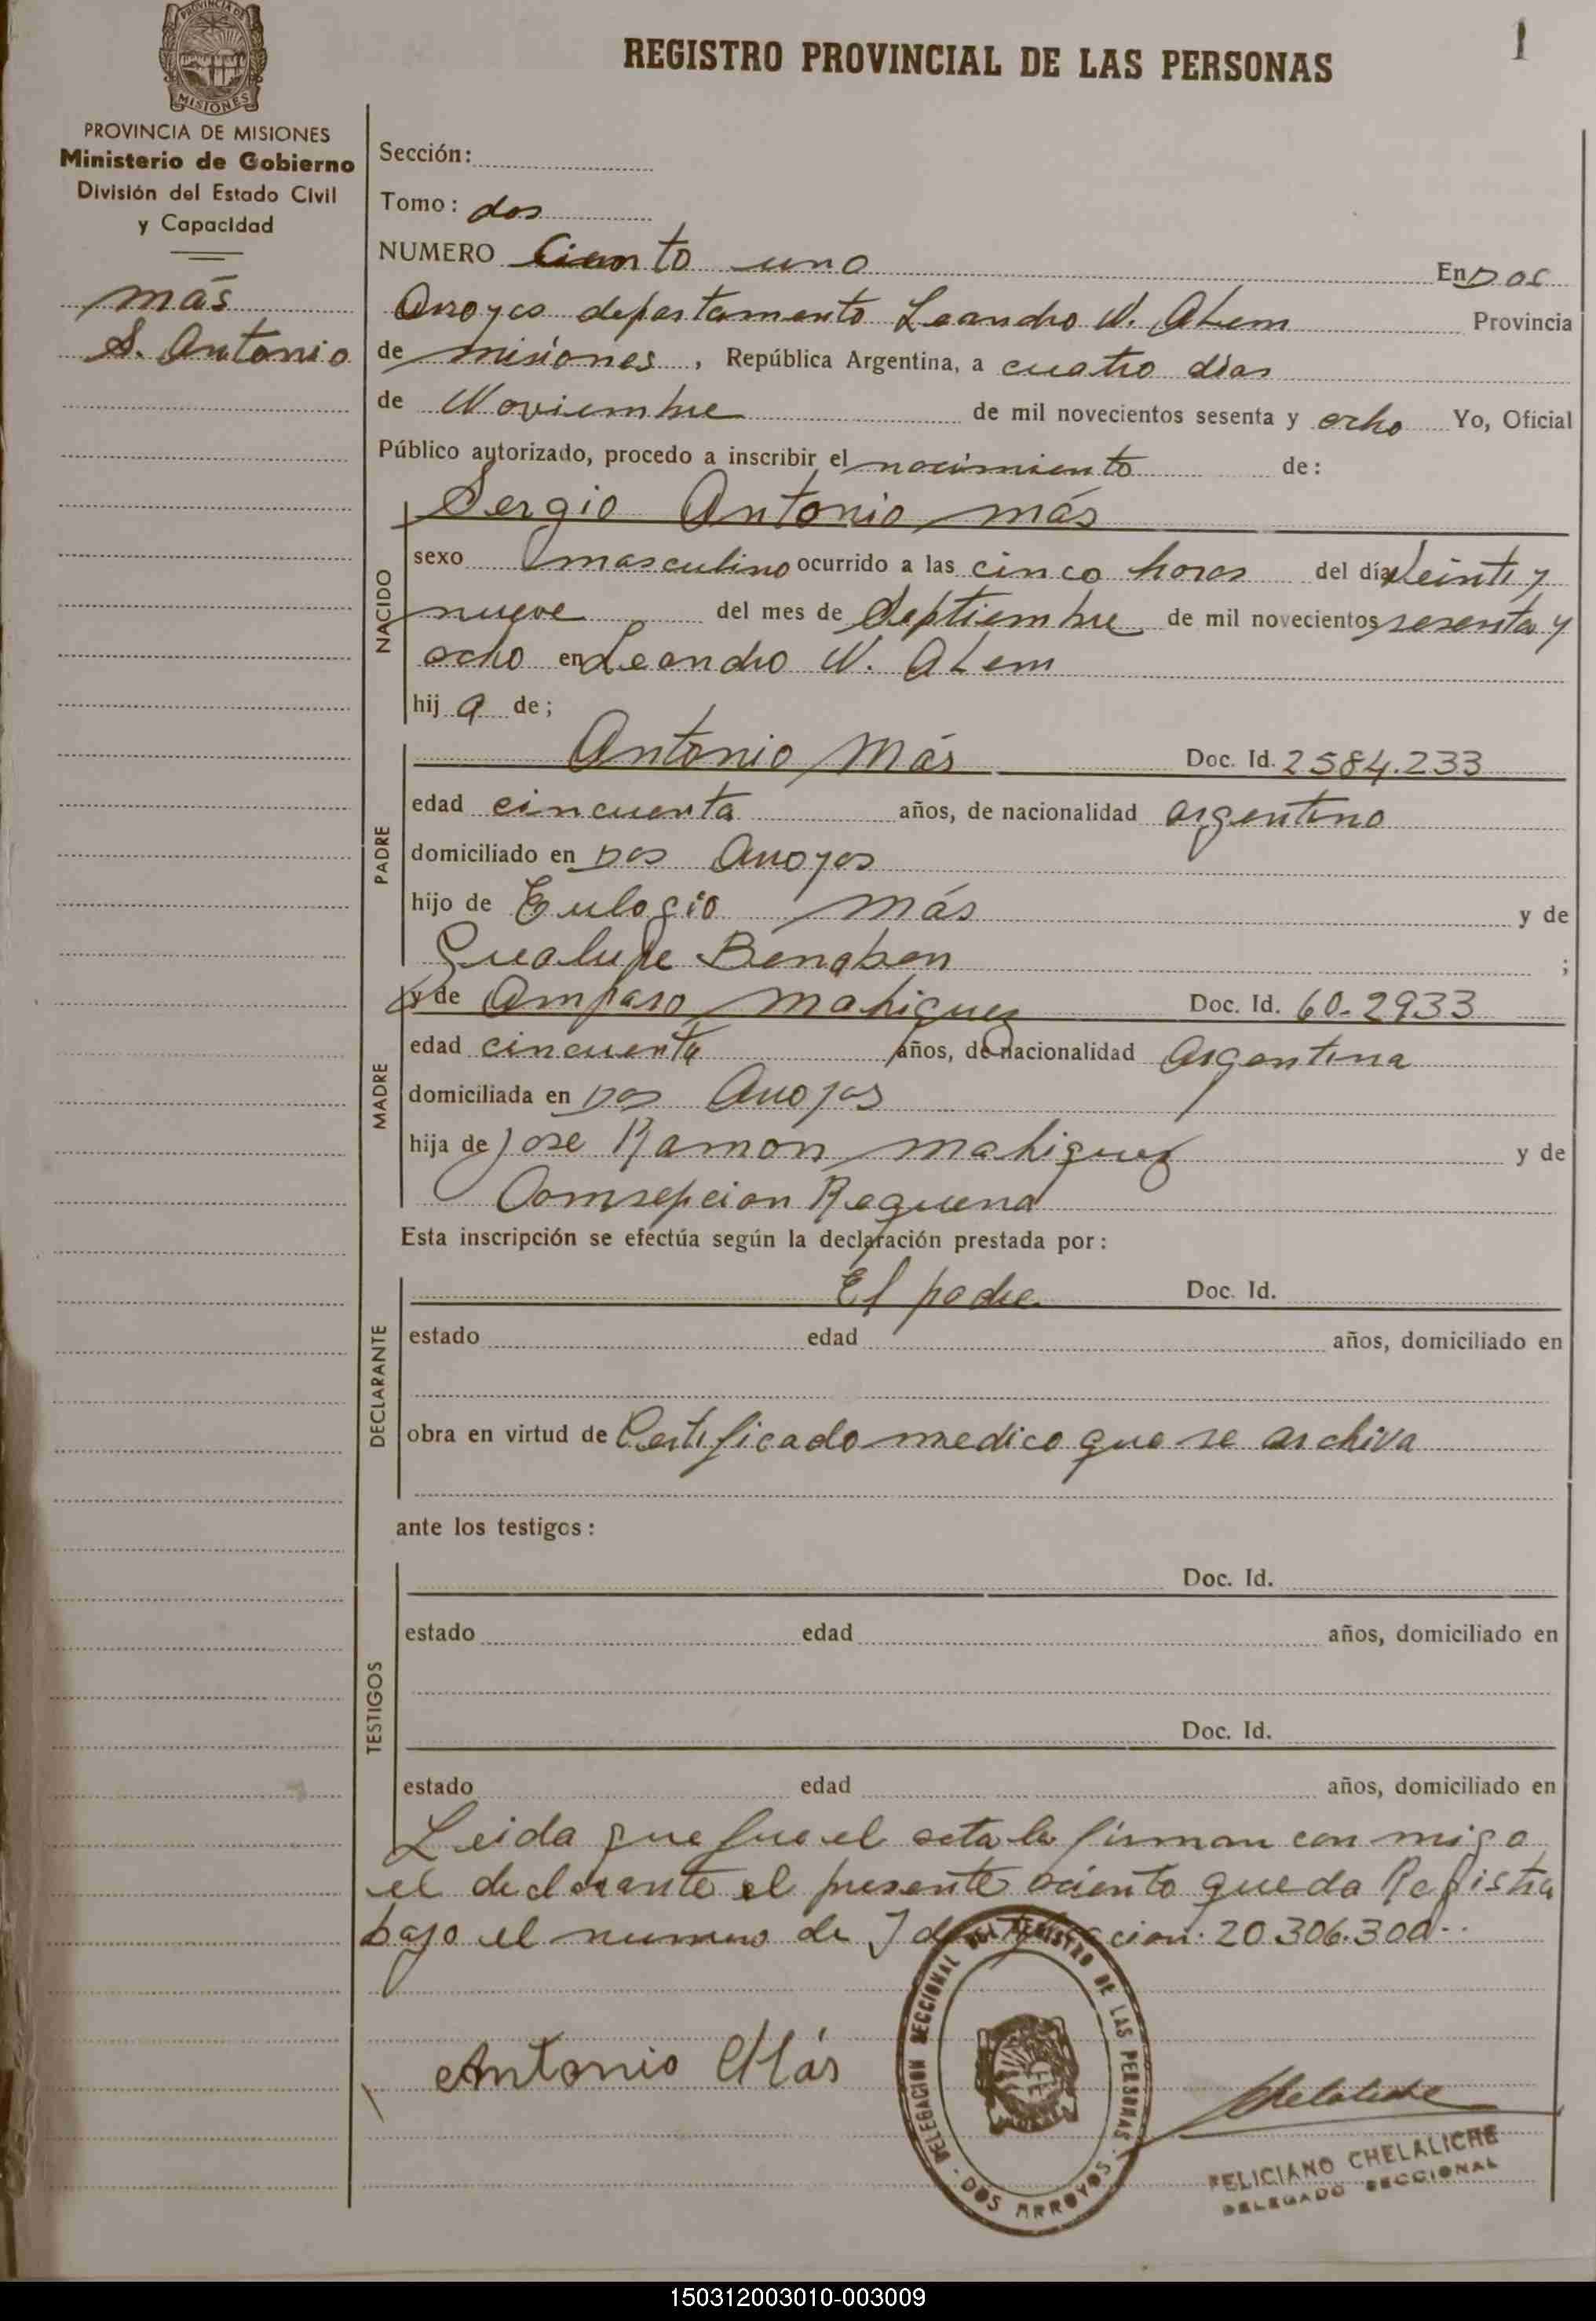 PROVINCIA DE
MISIONES
PROVINCIA DE MISIONES
Ministerio de Gobierno
División del Estado Civil
y Capacidad
más
S. Antonio
1
REGISTRO PROVINCIAL DE LAS PERSONAS
Sección:
Tomo: dos
NUMERO Ciento uno En Dos
Arroyos departamento Leandro N. Alem Provincia
de misiones, República Argentina, a cuatro días
de Noviembre de mil novecientos sesenta y ocho Yo, Oficial
Público autorizado, procedo a inscribir el nacimiento de:
Sergio Antonio más
NACIDO
sexo masculino ocurrido a las cinco horas del día Veinti y
nueve del mes de Septiembre de mil novecientos sesenta y
ocho en Leandro N. Alem
hij a de;
PADRE
Antonio Más Doc. Id. 2584.233
edad cincuenta años, de nacionalidad argentino
domiciliado en Dos Arroyos
hijo de Eulogio más y de
Gualupe Benaben ;
MADRE
y de Amparo mahiques Doc. Id. 60-2933
edad cincuenta años, de nacionalidad Argentina
domiciliada en Dos Arroyos
hija de Jose Ramon mahiquez y de
Comsepcion Requena
Esta inscripción se efectúa según la declaración prestada por:
DECLARANTE
El padre Doc. Id.
estado edad años, domiciliado en
obra en virtud de Certificado medico que se archiva
ante los testigos:
TESTIGOS
Doc. Id.
estado edad años, domiciliado en
Doc. Id.
estado edad años, domiciliado en
Leida que fue el acta la firman con migo
el declarante el presente aciento queda Registra
bajo el numero de Identificacion. 20.306.300--
DELEGACION SECCIONAL DEL REGISTRO DE LAS PERSONAS
- DOS ARROYOS -
Antonio Más
Chelaliche
FELICIANO CHELALICHE
DELEGADO SECCIONAL
150312003010-003009